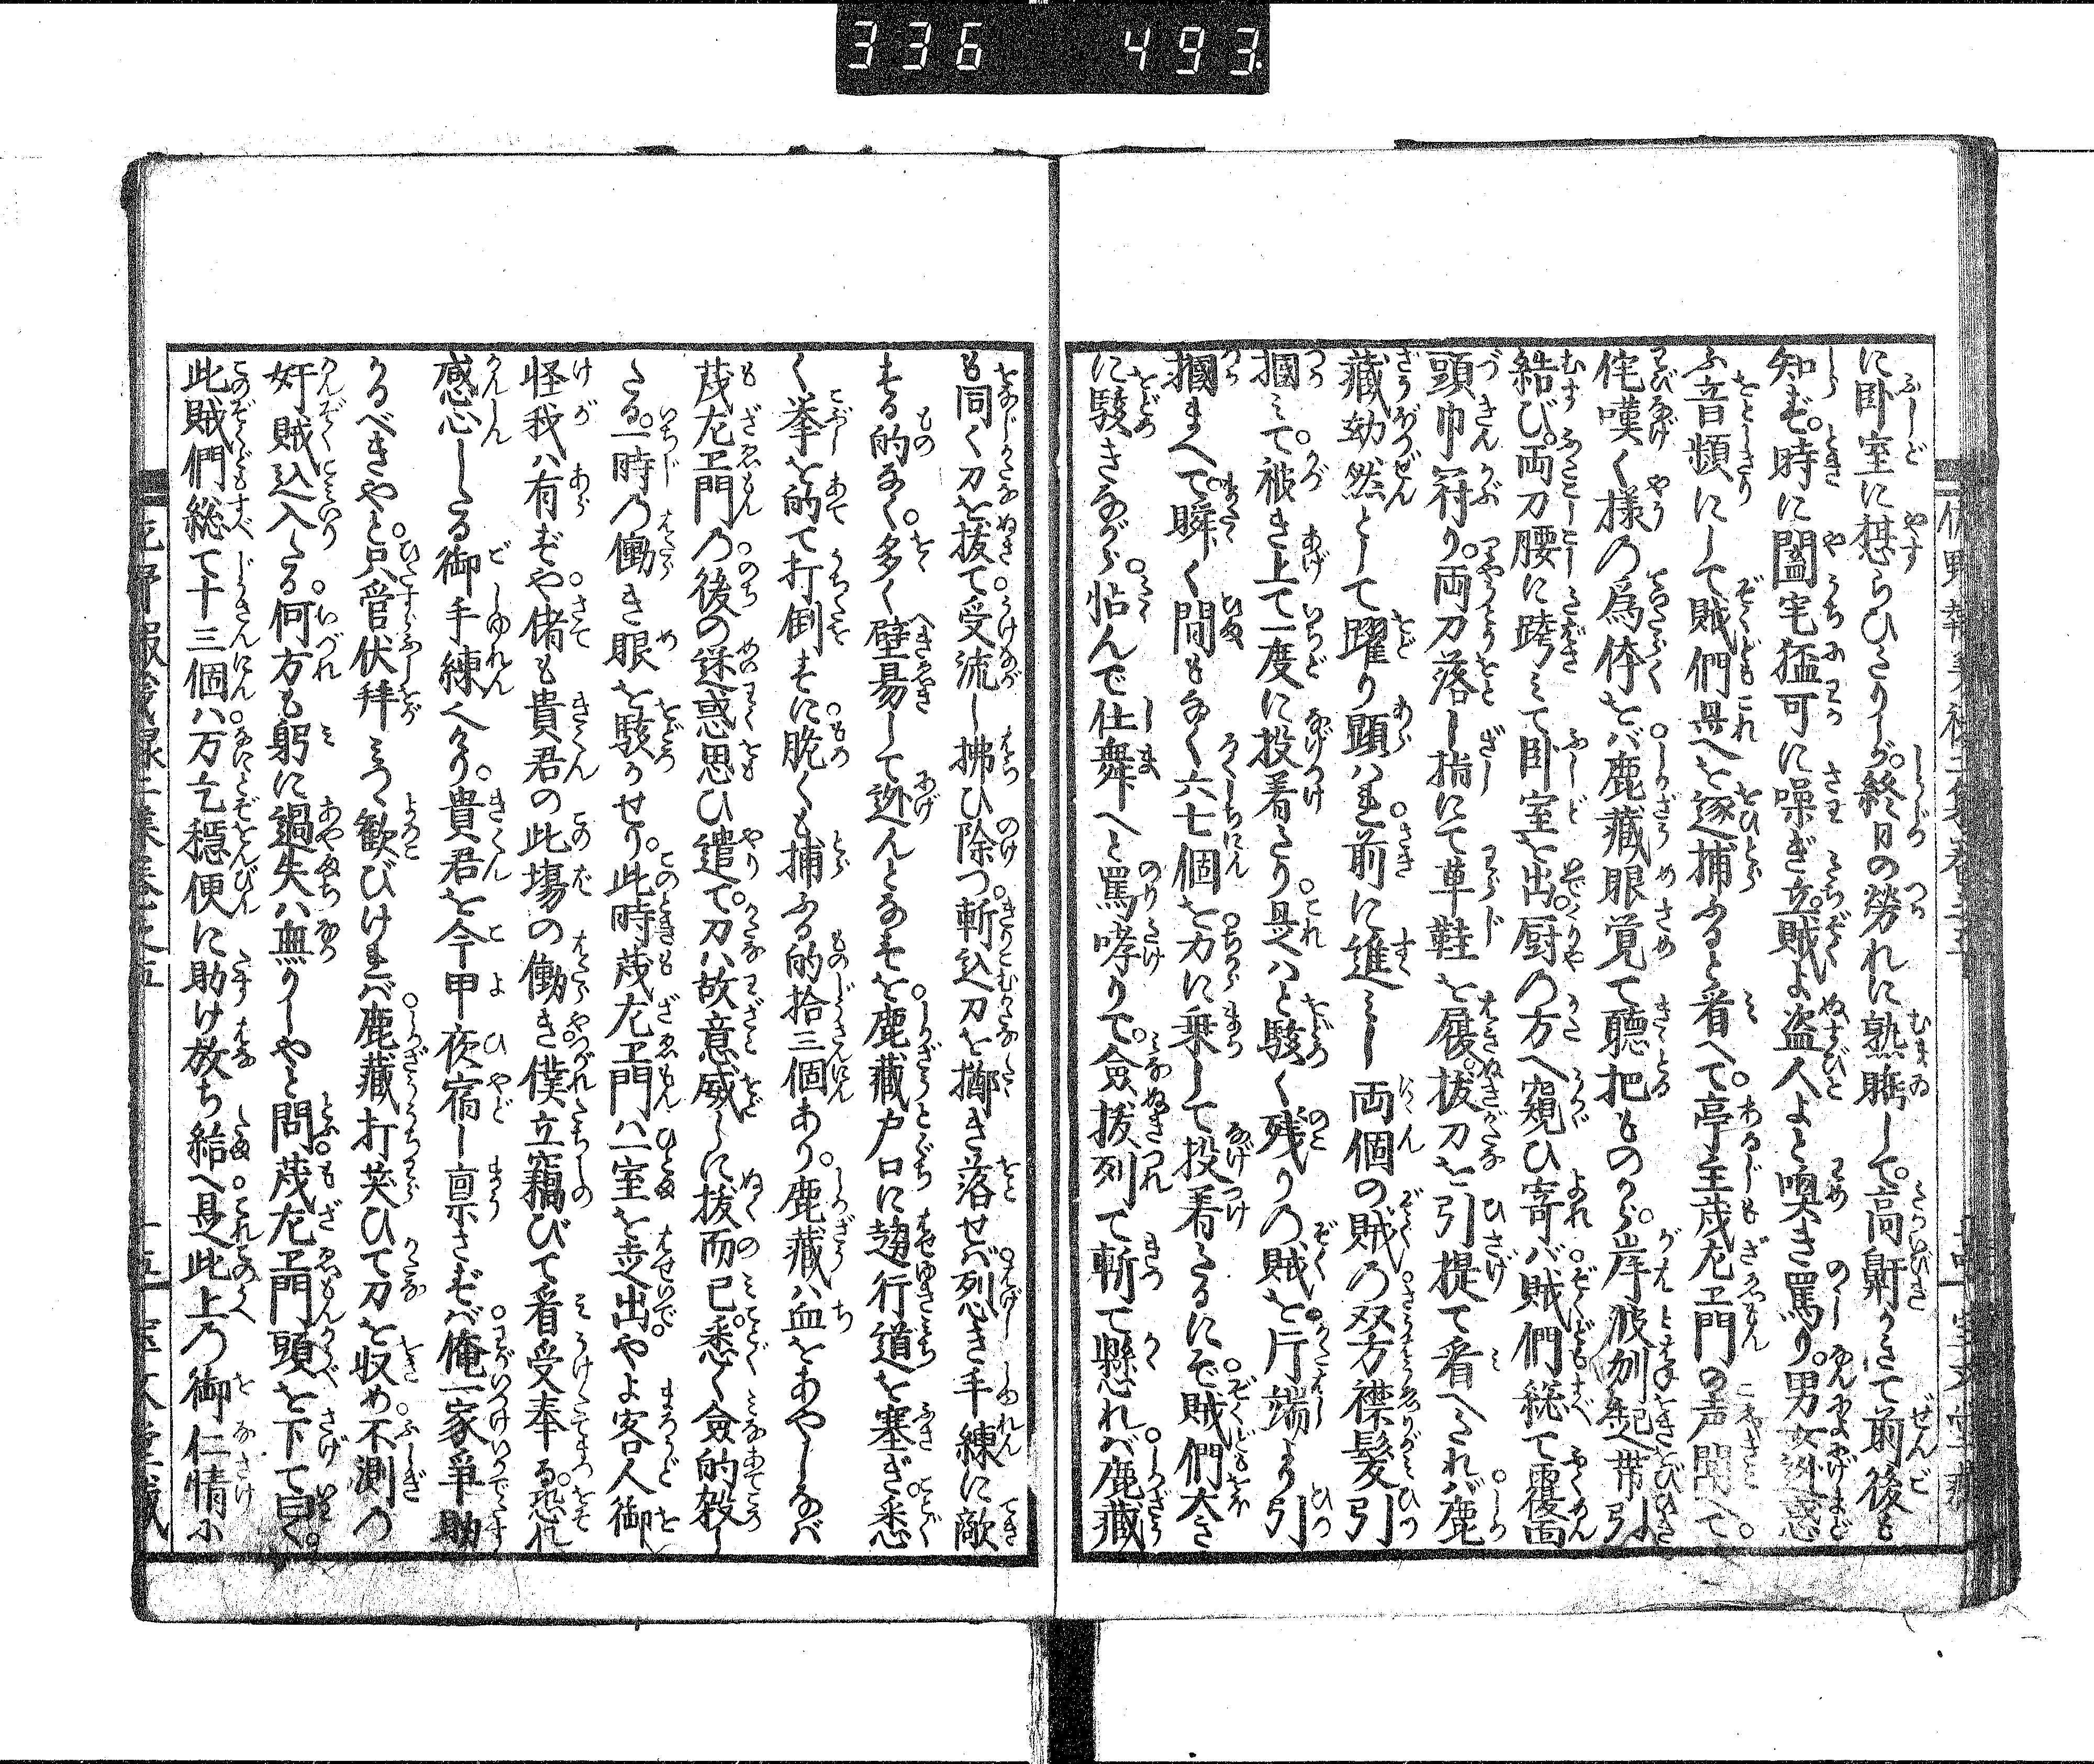 336 493
に臥室に憩らひたりしが。終日の労れに熟睡して。高鼾かきて前後も
知ず。時に闔宅猛可に噪ぎ立。賊よ盗人よと喚き罵り。男女迯惑
ふ音頻にして賊們是を逐捕ふると看へて。亭主茂左エ門の声聞へて。
侘嘆く様の為体をバ鹿藏眼覚て聴把ものから。岸破刎起帯引
結び。両刀腰に跨ミて臥室を出。厨の方へ窺ひ寄バ賊們総て覆面
頭巾冠り。両刀落し指にて草鞋を履。抜刀を引提て看へたれバ鹿
藏勃然として躍り顕ハれ前に進ミし両個の賊の双方襟髪引
摑ミて。被き上て一度に投着たり是ハと駭く残りの賊を片端より引
摑まへて。瞬く間もなく六七個を力に乗して投着たるにぞ賊們大き
に駭きながら。怗んで仕舞へと罵哮りて。僉抜列て斬て懸れバ鹿藏
も同く刀を抜て。受流し拂ひ除つ斬込刀を擲き落せバ烈しき手練に敵
する的なく。多く壁易して迯んとなすを。鹿藏戸口に趨行道を塞ぎ。悉
く拳を的て打倒すに。脆くも捕ふる的拾三個あり。鹿藏ハ血をあやしなバ
茂左エ門の後の迷惑思ひ遣て。刀ハ故意威しに抜而已。悉く僉的殺し
たる。一時の働き眼を駭かせり。此時茂左エ門ハ一室を走出。やよ客人御
怪我ハ有ずや。偖も貴君の此場の働き。僕立竊びて看受奉る。恐れ
感心したる御手練へかり。貴君を今甲夜宿し禀さずバ俺一家争助
かるべきやと。只管伏拝ミつゝ歓びけれバ。鹿藏打笑ひて刀を収め。不測の
奸賊込入たる。何方も躬に過失ハ無りしやと問。茂左エ門頭を下て曰く。
此賊們総て十三個ハ万乞穏便に助け放ち給へ。是此上の御仁情ふ